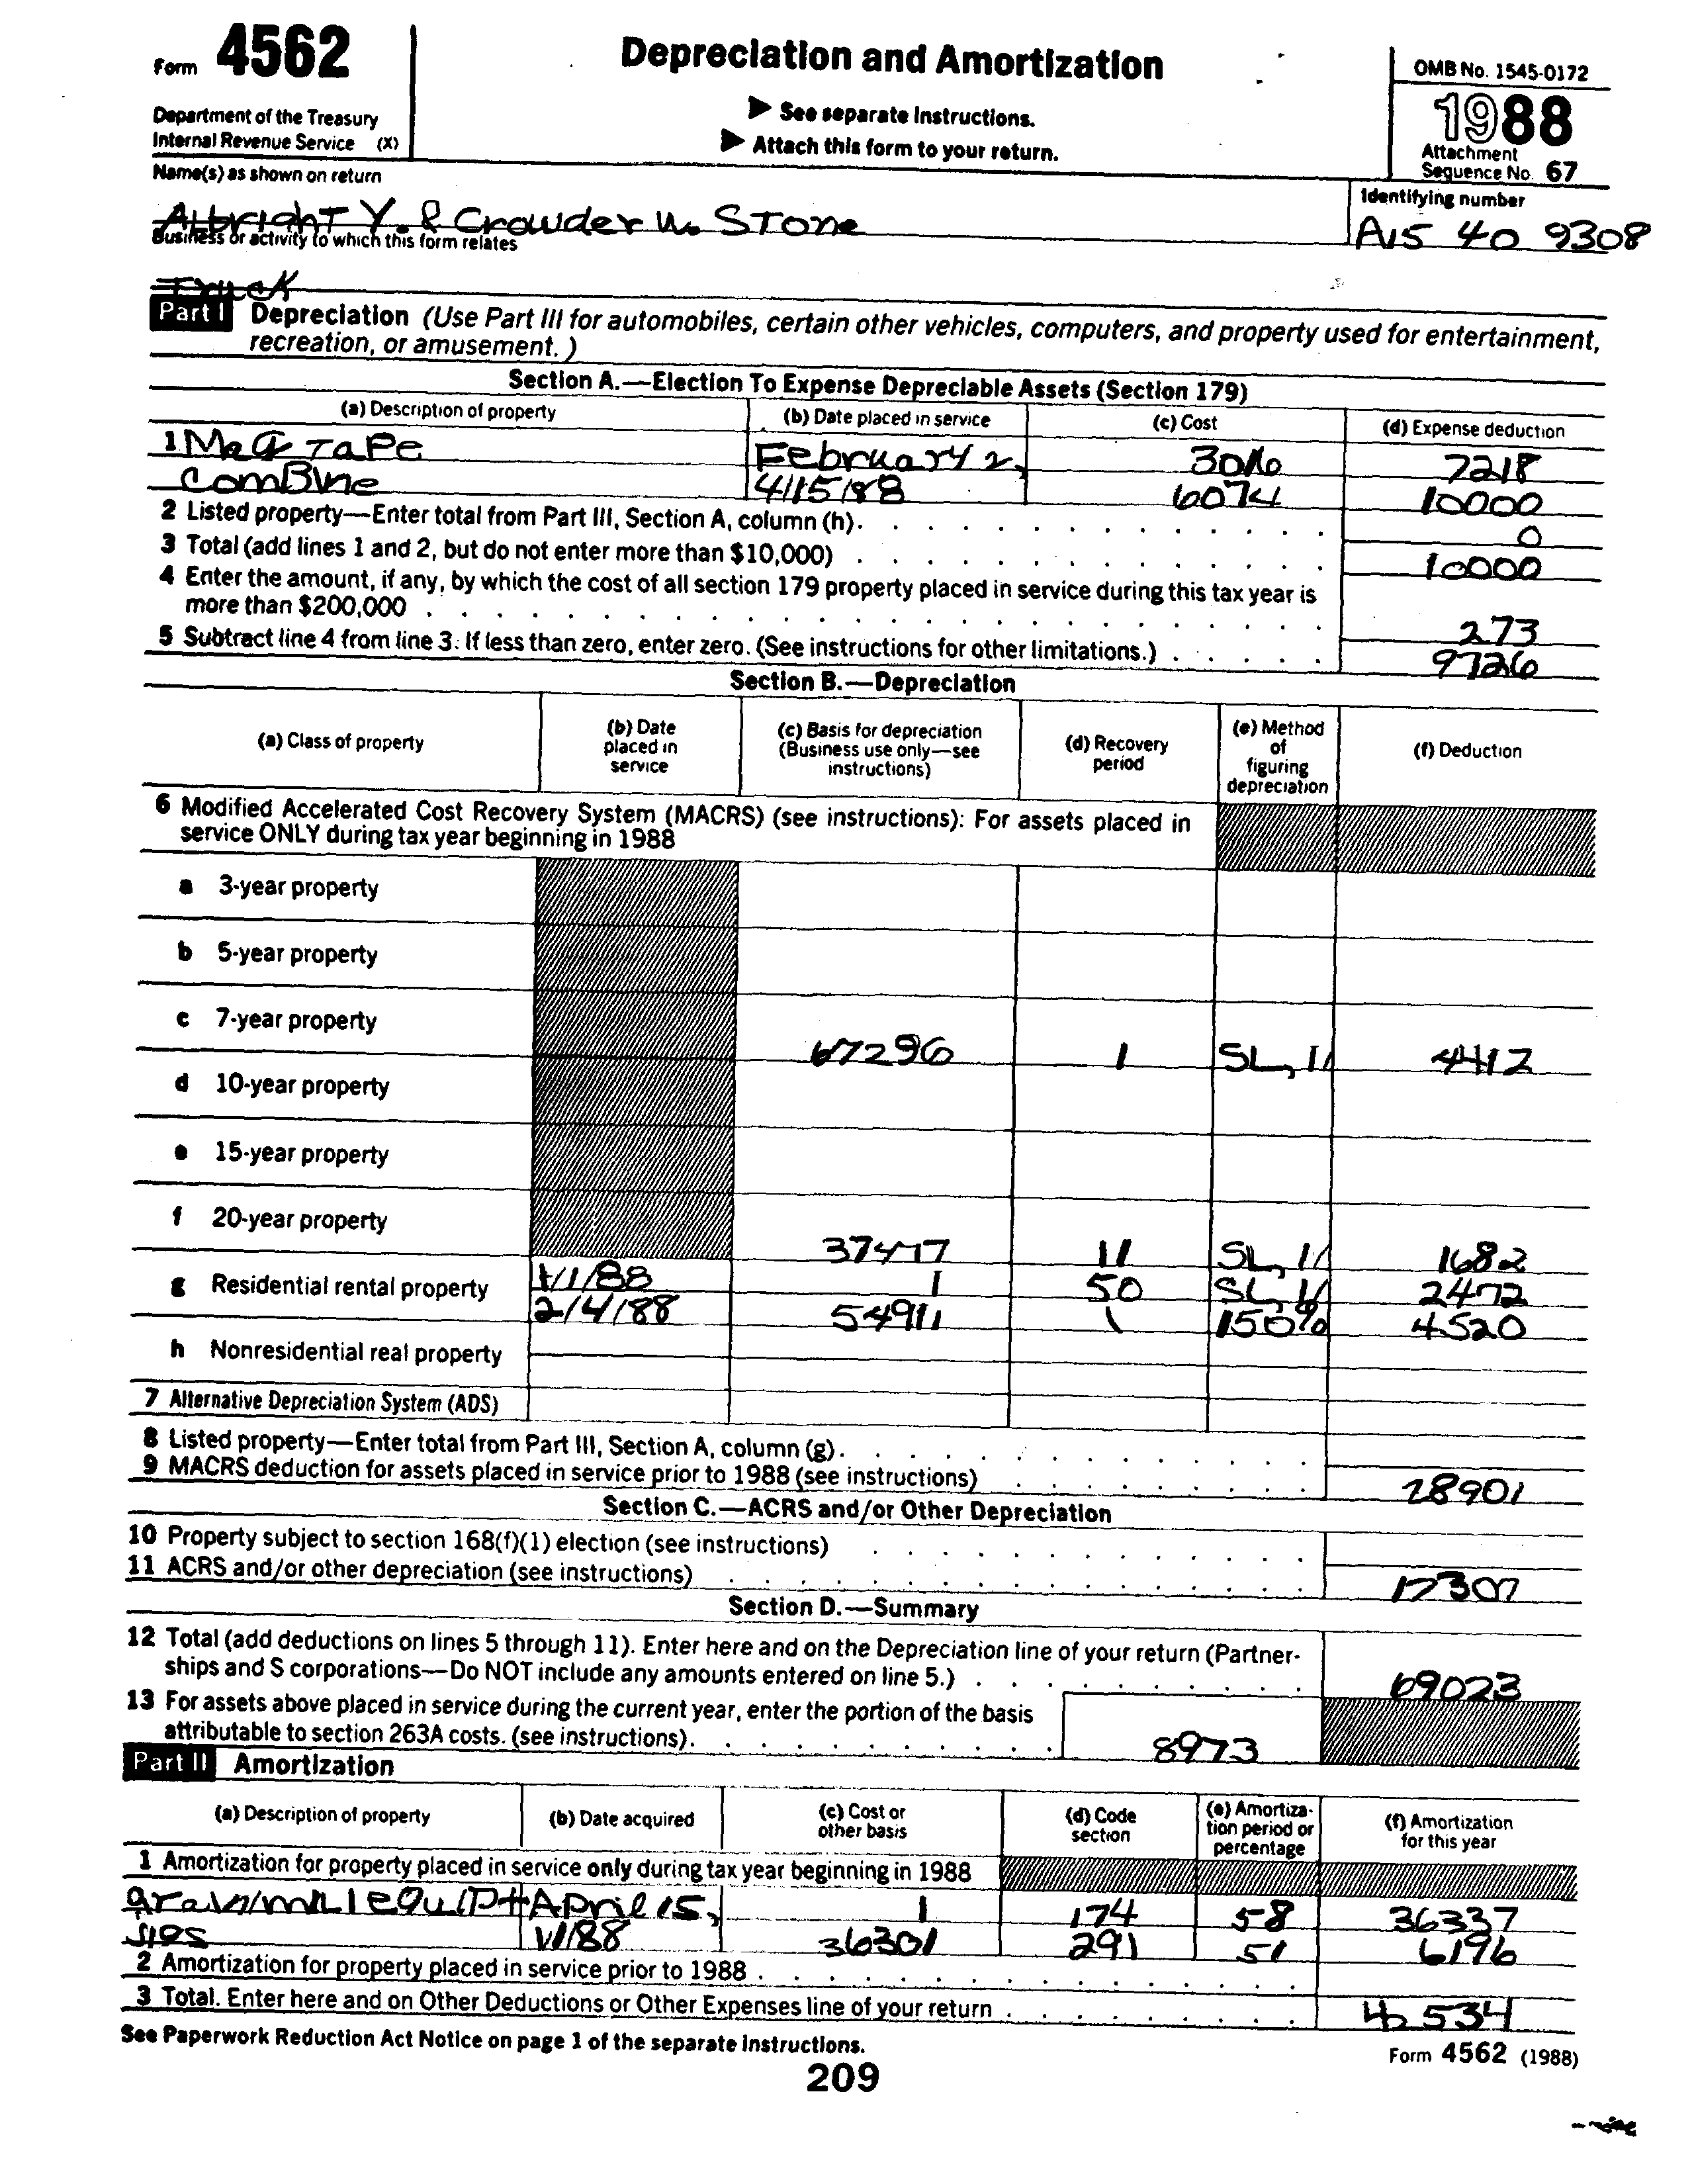 Form 4562
Depreciation and Amortization
OMB No. 1545-0172
Department of the Treasury
Internal Revenue Service (X)
▶ See separate Instructions.
▶ Attach this form to your return.
1988
Attachment
Sequence No. 67
Name(s) as shown on return
Identifying number
Albright Y. & Crowder W. Stone
40 9308
Business or activity to which this form relates
Truck
Part I Depreciation (Use Part III for automobiles, certain other vehicles, computers, and property used for entertainment,
recreation, or amusement.)
Section A.—Election To Expense Depreciable Assets (Section 179)
(a) Description of property (b) Date placed in service (c) Cost (d) Expense deduction
1 Mag Tape February 2, 7218
ComBine 4/15/88 6074 10000
2 Listed property—Enter total from Part III, Section A, column (h). 0
3 Total (add lines 1 and 2, but do not enter more than $10,000) 10000
4 Enter the amount, if any, by which the cost of all section 179 property placed in service during this tax year is
more than $200,000 273
5 Subtract line 4 from line 3. If less than zero, enter zero. (See instructions for other limitations.) 9726
Section B.—Depreciation
(a) Class of property (b) Date placed in service (c) Basis for depreciation (Business use only—see instructions) (d) Recovery period (e) Method of figuring depreciation (f) Deduction
6 Modified Accelerated Cost Recovery System (MACRS) (see instructions): For assets placed in
service ONLY during tax year beginning in 1988
a 3-year property
b 5-year property
c 7-year property
67296 1 SL, 4412
d 10-year property
e 15-year property
f 20-year property
37477 11 SL, 1682
g Residential rental property 1/1/88 1 50 SL, 2472
2/4/88 54911 1 150% 4520
h Nonresidential real property
7 Alternative Depreciation System (ADS)
8 Listed property—Enter total from Part III, Section A, column (g).
9 MACRS deduction for assets placed in service prior to 1988 (see instructions) 28901
Section C.—ACRS and/or Other Depreciation
10 Property subject to section 168(f)(1) election (see instructions)
11 ACRS and/or other depreciation (see instructions) 17307
Section D.—Summary
12 Total (add deductions on lines 5 through 11). Enter here and on the Depreciation line of your return (Partner-
ships and S corporations—Do NOT include any amounts entered on line 5.) 69023
13 For assets above placed in service during the current year, enter the portion of the basis
attributable to section 263A costs. (see instructions). 8973
Part II Amortization
(a) Description of property (b) Date acquired (c) Cost or other basis (d) Code section (e) Amortiza-tion period or percentage (f) Amortization for this year
1 Amortization for property placed in service only during tax year beginning in 1988
April 15, 1 174 58 36337
1/1/88 36301 291 51 6196
2 Amortization for property placed in service prior to 1988
3 Total. Enter here and on Other Deductions or Other Expenses line of your return 42534
See Paperwork Reduction Act Notice on page 1 of the separate Instructions.
Form 4562 (1988)
209